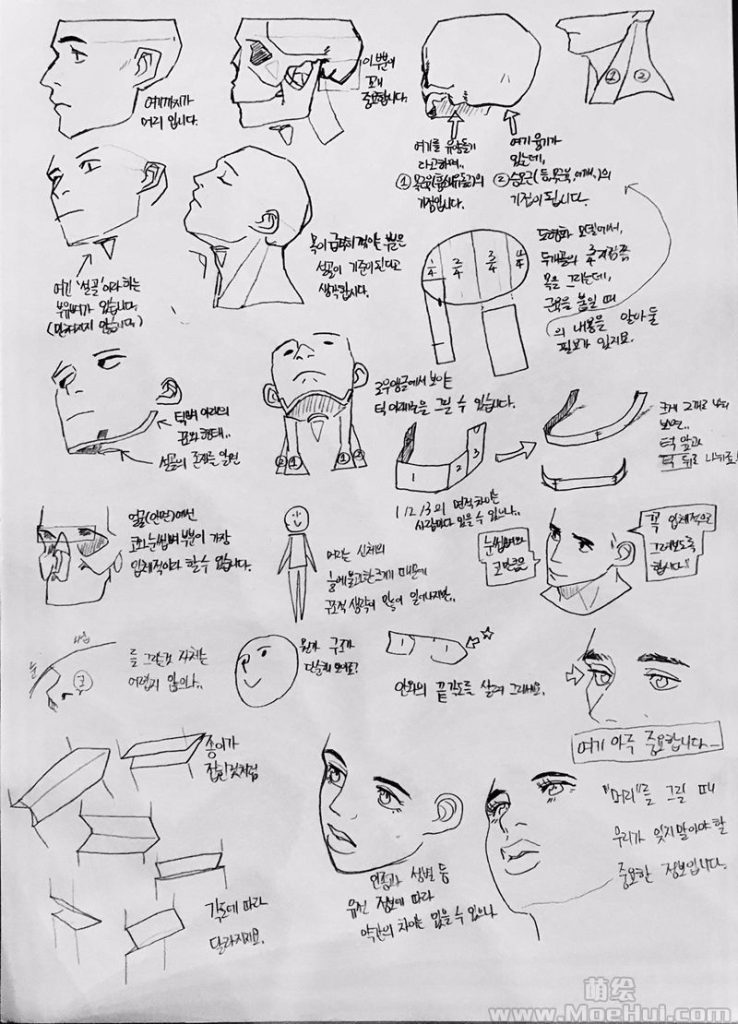 여기까지가
머리 입니다.
이 부분이
꽤
중요합니다.
① ②
여기를 유양돌기
라고하며..
① 목근육(흉쇄유돌근)의
기점입니다.
여기 융기가
있는데,
② 승모근(등, 목근육, 어깨..)의
기점이 됩니다.
여긴 '설골'이라 하는
부유뼈가 있습니다.
(만져지지 않습니다)
목이 급격히 꺾이는 부분은
설골이 기준이 된다고
생각합니다.
1/4 2/4 3/4 4/4
도형화 모델에서,
두개골의 중지점쯤
목을 그리는데,
근육을 붙일 때
의 내용을 알아둘
필요가 있지요.
턱뼈 아래의
표와 형태..
설골의 존재를 알면
로우앵글에서 보이는
턱 아래쪽을 그릴 수 있습니다.
② ① ① ②
1 2 3
1/2/3의 면적 차이는
사람마다 있을 수 있으나..
크게 2개로 나눠
보면..
턱 앞과
턱 뒤로 나뉘지요!
얼굴(안면)에선
코와 눈썹뼈 부분이 가장
입체적이라 할 수 있습니다.
머리는 신체의
1/8에 불과한 크기 때문에
구조적 생략이 많이 일어나지만..
눈썹뼈와
코만큼은
꼭 입체적으로
그려보도록
합니다!!
눈
코
를 그린것 자체는
어렵지 않으나..
뭔가 구조가
단순해 보이죠?
안와의 끝각도를 살려 그리세요.
여기 아주 중요합니다..
종이가
접힌것처럼
각도에 따라
달라지지요.
인종과 성별 등
유전 정보에 따라
약간의 차이는 있을 수 있으나
"머리"를 그릴 때
우리가 잊지말아야 할
중요한 정보입니다.
萌绘
www.MoeHui.com